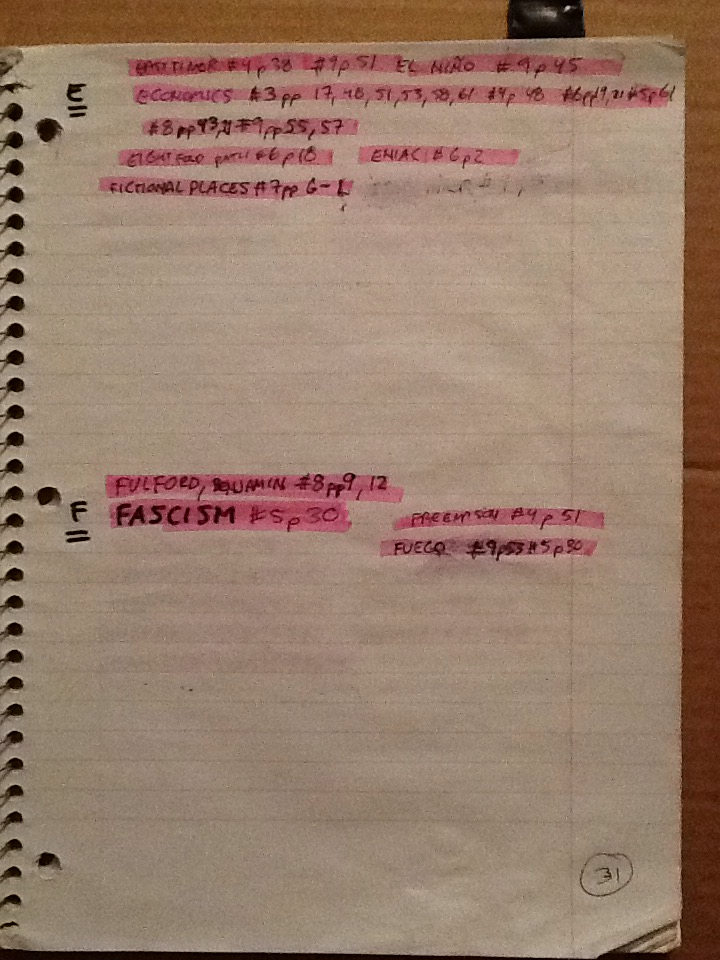 E
EAST TIMOR #4 p 38 #9p 51 EL NIÑO #9 p 45
ECONOMICS #3 pp 17, 48, 51, 53, 58, 61 #4p 48 #6pp19,21 #5p61
#8 pp43,21 #9pp 55, 57
EIGHTFOLD PATH #6 p18 ENIAC #6p2
FICTIONAL PLACES #7pp G-L
FULFORD, BENJAMIN #8pp9, 12
F
FASCISM #5p30 FREEMASON #4p 51
FUEGO #9p53 #5p30
31